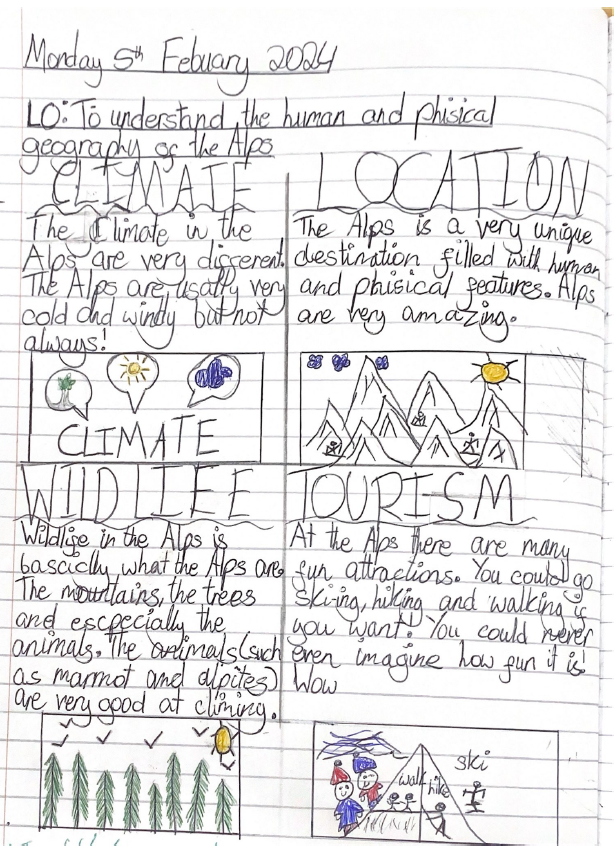 Monday 5th Febuary 2024
LO: To understand the human and phisical
geography of the Alps
CLIMATE
The Climate in the
Alps are very different.
The Alps are usally very
cold and windy but not
always!
CLIMATE
LOCATION
The Alps is a very unique
destination filled with human
and phisical features. Alps
are very amazing.
WILDLIFE
Wildlife in the Alps is
bascically what the Alps are.
The mountains, the trees
and escpecially the
animals. The animals (such
as marmot and alpites)
are very good at climing.
TOURISM
At the Alps there are many
fun attractions. You could go
ski-ing, hiking and walking if
you want! You could never
even imagine how fun it is!
Wow
walk
hike
ski